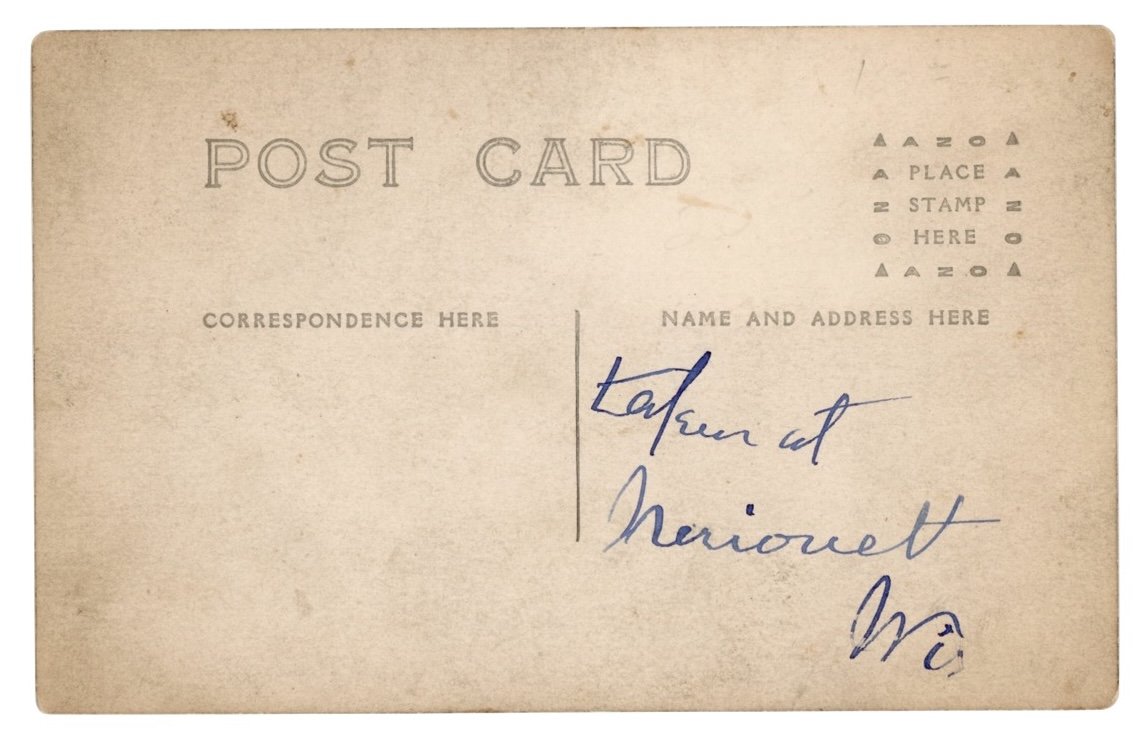 POST CARD
▲ A Z O ▲
A PLACE A
Z STAMP Z
O HERE O
▲ A Z O ▲
CORRESPONDENCE HERE
NAME AND ADDRESS HERE
taken at
Wis